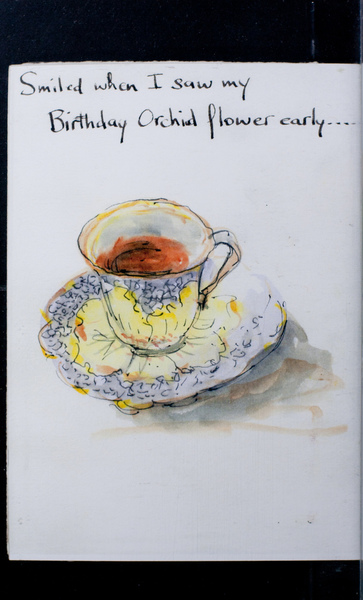 Smiled when I saw my
Birthday Orchid flower early.....